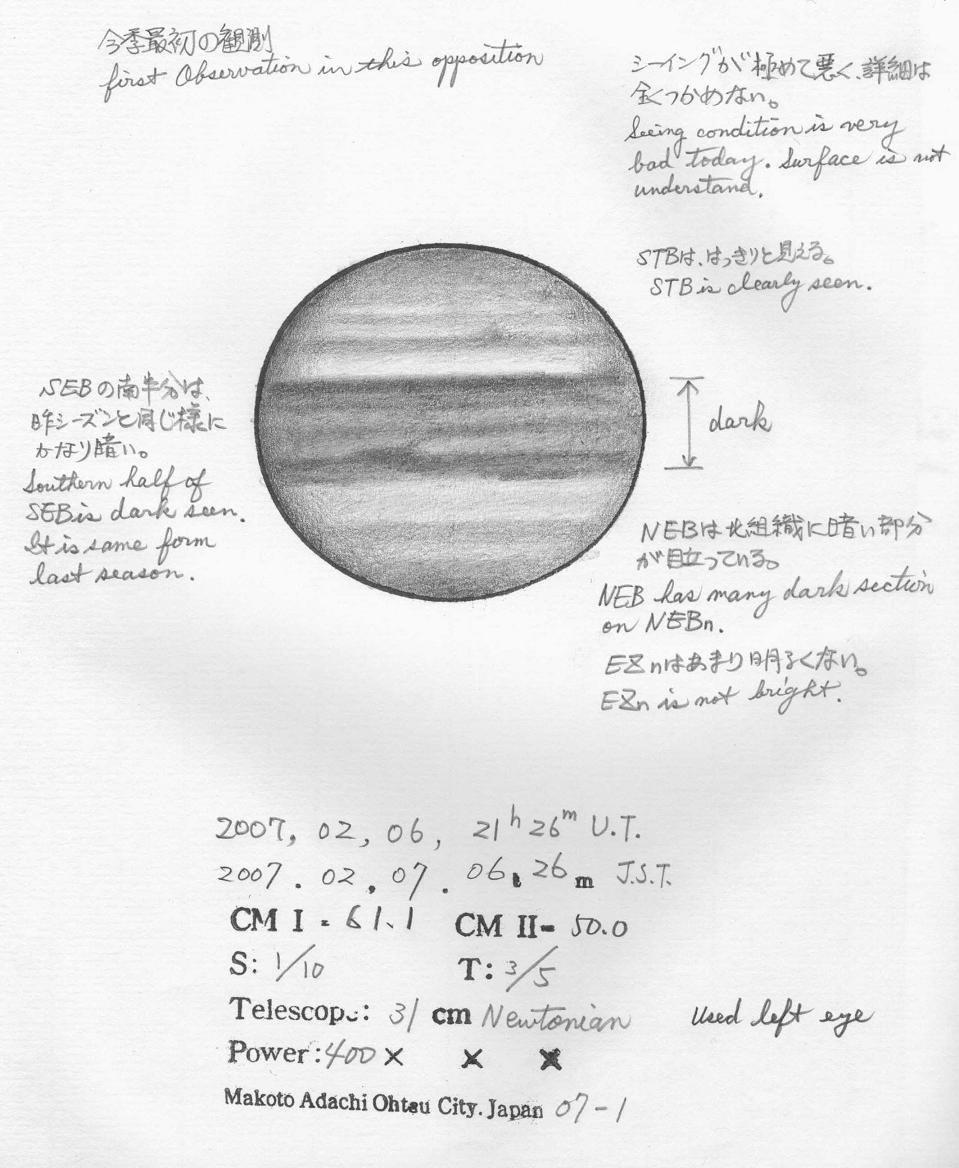 今季最初の観測
first Observation in this opposition
シーイングが極めて悪く、詳細は
全くつかめない。
Seeing condition is very
bad today. Surface is not
understand.
STBは、はっきりと見える。
STB is clearly seen.
SEBの南半分は、
昨シーズンと同じ様に
かなり暗い。
Southern half of
SEB is dark seen.
It is same form
last season.
dark
NEBは北組織に暗い部分
が目立っている。
NEB has many dark section
on NEBn.
EZnはあまり明るくない。
EZn is not bright.
2007, 02, 06, 21h 26m U.T.
2007. 02, 07. 06 26m J.S.T.
CM I - 61.1 CM II- 50.0
S: 1/10 T: 3/5
Telescope: 31 cm Newtonian used left eye
Power: 400 × × ×
Makoto Adachi Ohtsu City. Japan 07-1